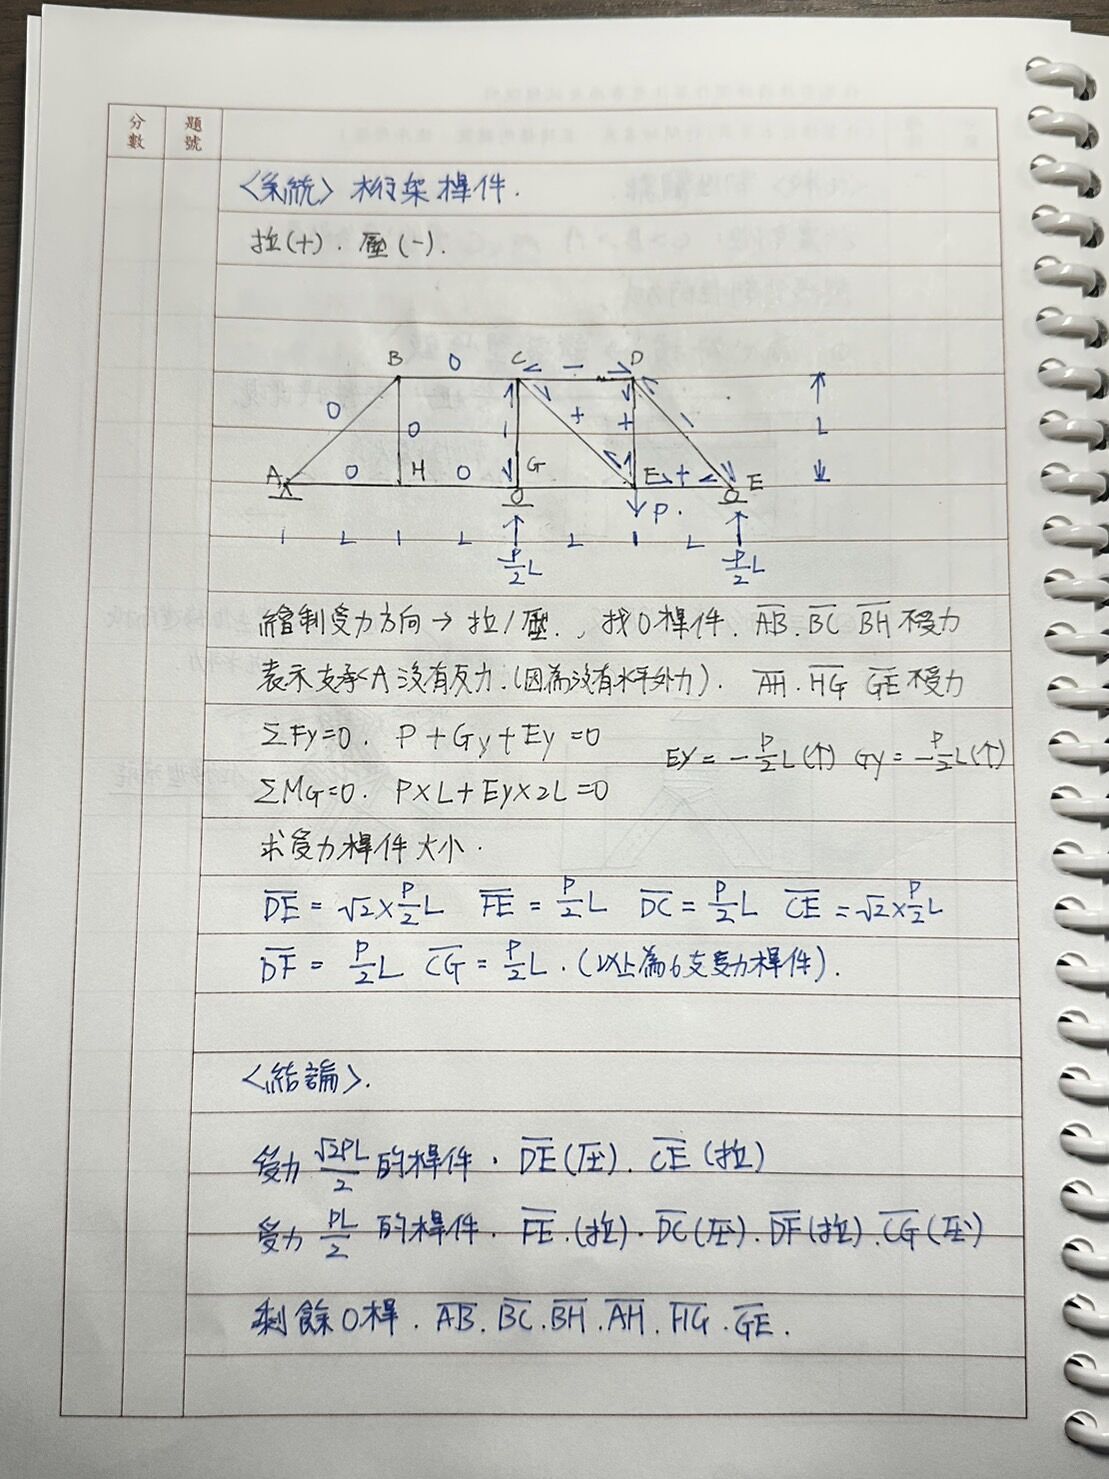 分數 題號
〈系統〉桁架桿件.
拉(+). 壓(-).
B 0 C - D
0 0 + +
L
A 0 H 0 G E + E
P.
L L P/2 L L L P/2 L
繪制受力方向→拉/壓., 找0桿件. AB. BC BH 不受力
表示支承A沒有反力.(因為沒有水平外力). AH. HG GE 不受力
ΣFy=0. P+Gy+Ey=0 Ey=-P/2 L(↑) Gy=-P/2 L(↑)
ΣMG=0. P×L+Ey×2L=0
求受力桿件大小.
DE = √2×P/2 L FE = P/2 L DC = P/2 L CE = √2×P/2 L
DF = P/2 L CG = P/2 L. (以上為6支受力桿件).
〈結論〉.
受力 √2PL/2 的桿件. DE(压). CE(拉)
受力 PL/2 的桿件. FE.(拉). DC(压). DF(拉). CG(压)
剩餘0桿. AB. BC. BH. AH. HG. GE.